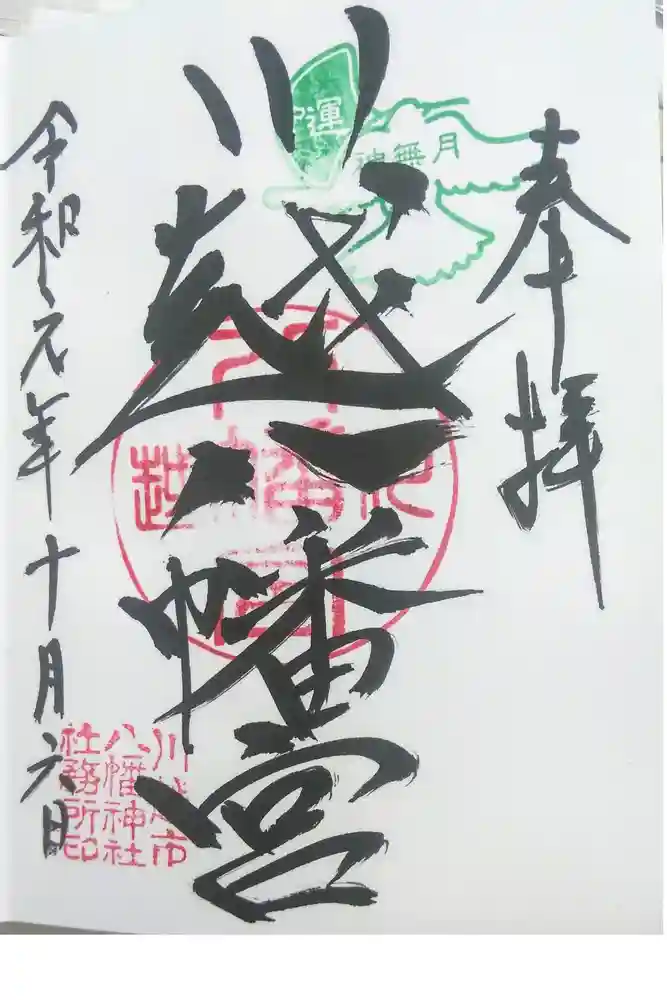 奉拝
神無月
川越八幡宮
令和元年十月六日
川越市
八幡神社
社務所印